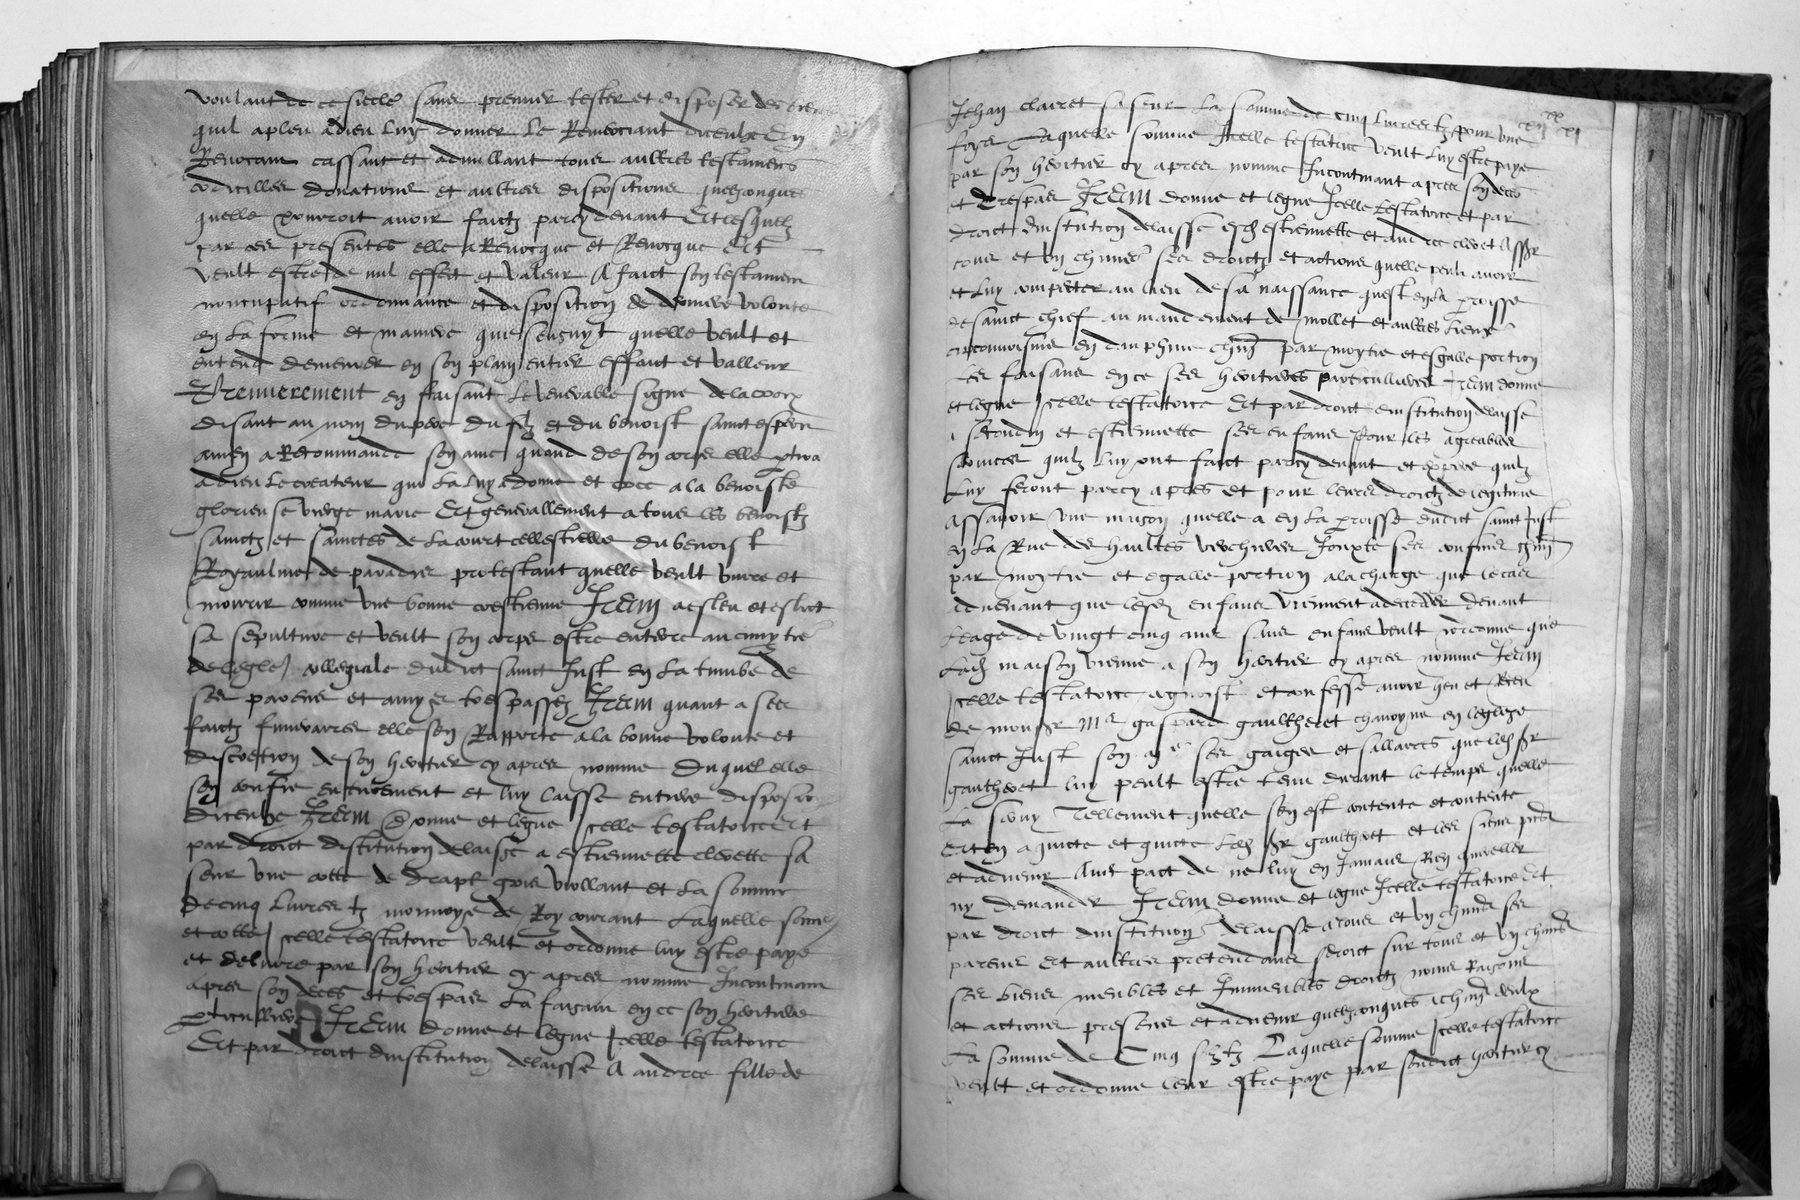 voulant de ce siecle sans premier tester et disposer des biens
quil a pleu a dieu luy donner le Remerciant diceulx En
Revocant cassant et adnullant tous aultres testamens
codicilles donations et aultres dispositions quelzconques
quelle pourroit avoir faictz parcy devant Et lesquelz
par ces presentes elle a Revocque et Revocque Et
veult estre de nul effect et valeur A faict son testament
noncupatif ordonnance et disposition de derniere volonte
en la forme et maniere que sensuyt quelle veult et
entend demeurer en son plain entier effaict et valleur
Premierement en faisant le venerable signe de la croix
disant au nom du pere du filz et du benoist sainct esperit
amen a Recommande son ame quand de son corps elle ptira
a dieu le createur qui la luy a donne et cree a la benoiste
glorieuse vierge marie Et generallement a tous les benoistz
sainctz et sainctes de la court cellestielle du benoist
Royaulme de paradis protestant quelle veult vivre et
mourir comme une bonne crestienne Item a esleu et eslict
sa sepulture et veult son corps estre enterre au cimytre
de leglese collegiale dudict sainct Just en la tumbe de
ses parens et amys trespassez Item quant a ses
faictz funeraires elle sen Rapporte a la bonne volonte et
discretion de son heritier cy apres nomme duquel elle
sen confie entierement et luy laisse entiere disposition
diceulx Item Donne et legue Icelle testatrice Et
par droict distitution delaisse a estiennette clerette sa
seur une cotte de drapt gris viollant et la somme
de cinq livres tz monnoye de Roy courant Laquelle some
et cotte Icelle testatrice veult et ordonne luy estre paye
et delivre par son heritier cy apres nomme Incontinant
apres son deces et trespas La faisant en ce son heritiere
pticulliere Item donne et legue Icelle testatrice
Et par droict dinstitution delaisse A andree fille de
Jehan clairet sa seur la somme de cinq livres tz pour une
foys Laquelle somme Icelle testatrice veult luy estre paye
par son heritier cy apres nomme Incontinant apres son deces
et trespas Item donne et legue Icelle testatrice et par
droict dinstitution delaisse esch estiennette et andree
tous et ung chuns ses droictz et actions quelle peult avoir
et luy compecter au lieu de sa naissance quest en la proisse
de sainct chief au mandement de mollet et aultres lieux
circonvoisins en dauphine par moytie et esgalle portion
les faisans en ce ses heritieres particullieres Item donne
et legue Icelle testatrice Et par droict dinstitution delaisse
a et estiennette ses enfans pour les agreables
services quilz luy ont faict parcy devant et espere quilz
luy feront parcy apres et pour leurs droictz de legitime
assavoir une maison quelle a en la proisse dudict sainct Just
en la Rue des haultes verchieres Jouxte ses confins
par moytie et egalle portion a la charge que le cas
advenant que lesdz enfans viennent a deceder devant
leage de vingt cinq ans sans enfans veult ordonne que
ladz maison vienne a son heritier cy apres nomme Item
Icelle testatrice cognoist et confesse avoir heu et Receu
de monsr Mr gaspard gaultheret chanoyne en leglise
sainct Just son me ses gaiges et sallaires que ledz sr
gaultheret luy peult estre tenu durant le temps quelle
la servy Tellement quelle sen est contente et contente
Et en a quicte et quicte ledz sr gaultheret et les siens prens
et advenir Avec pact de ne luy en Jamais Rien quereller
ny demander Item donne et legue Icelle testatrice Et
par droict dinstitution delaisse a tous et ung chuns ses
parens Et aultres pretendans droict sur tous et ung chuns
ses biens meubles et Immeubles droictz noms Raisons
et actions presens et advenir quelzconques a deulx
la somme de Cinq s tz Laquelle somme Icelle testatrice
veult et ordonne leur estre paye par sondict heritier cy